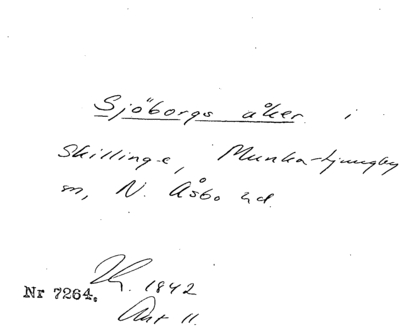 Sjöborgs åker i
Skillinge, Munka-Ljungby
sn, N. Åsbo hd.
1842
Nr 7264.
Akt 11.